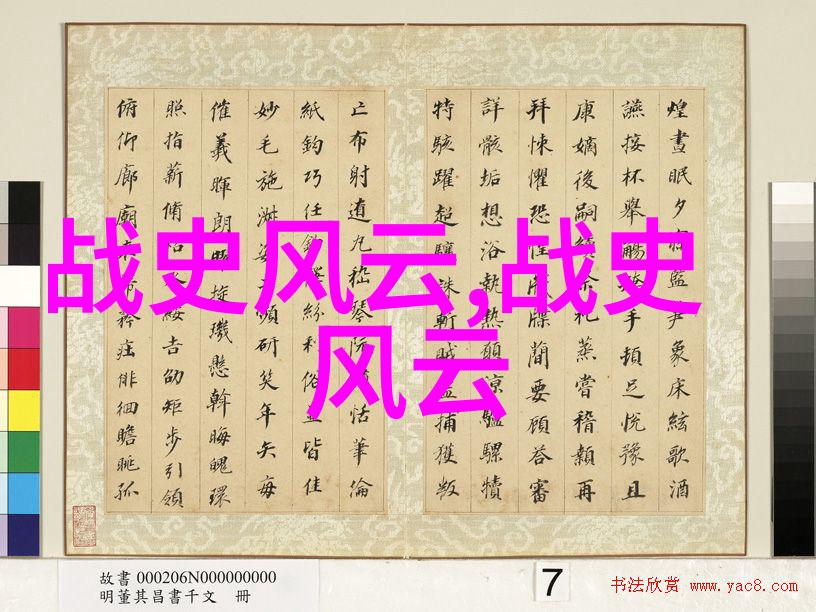 战史风云,战史
风云
煌晝眠夕寐藍笋象床絃歌酒
讌接杯舉觴矯手頓足悅豫且
康嫡後嗣續祭祀蒸嘗稽顙再
拜悚懼恐惶牋牒簡要顧答審
詳骸垢想浴執熱願涼驢騾犢
特駭躍超驤誅斬賊盜捕獲叛
亡布射遼丸嵇琴阮嘯恬筆倫
紙鈞巧任釣釋紛利俗並皆佳
妙毛施淑姿工頻研笑年矢每
催羲暉朗曜旋璣懸斡晦魄環
照指薪脩祜永綏吉劭矩步引領
俯仰廊廟束帶矜莊徘徊瞻眺孤
故書 000206N000000000
明董其昌書千文 冊
7
书法欣赏 www.yac8.com